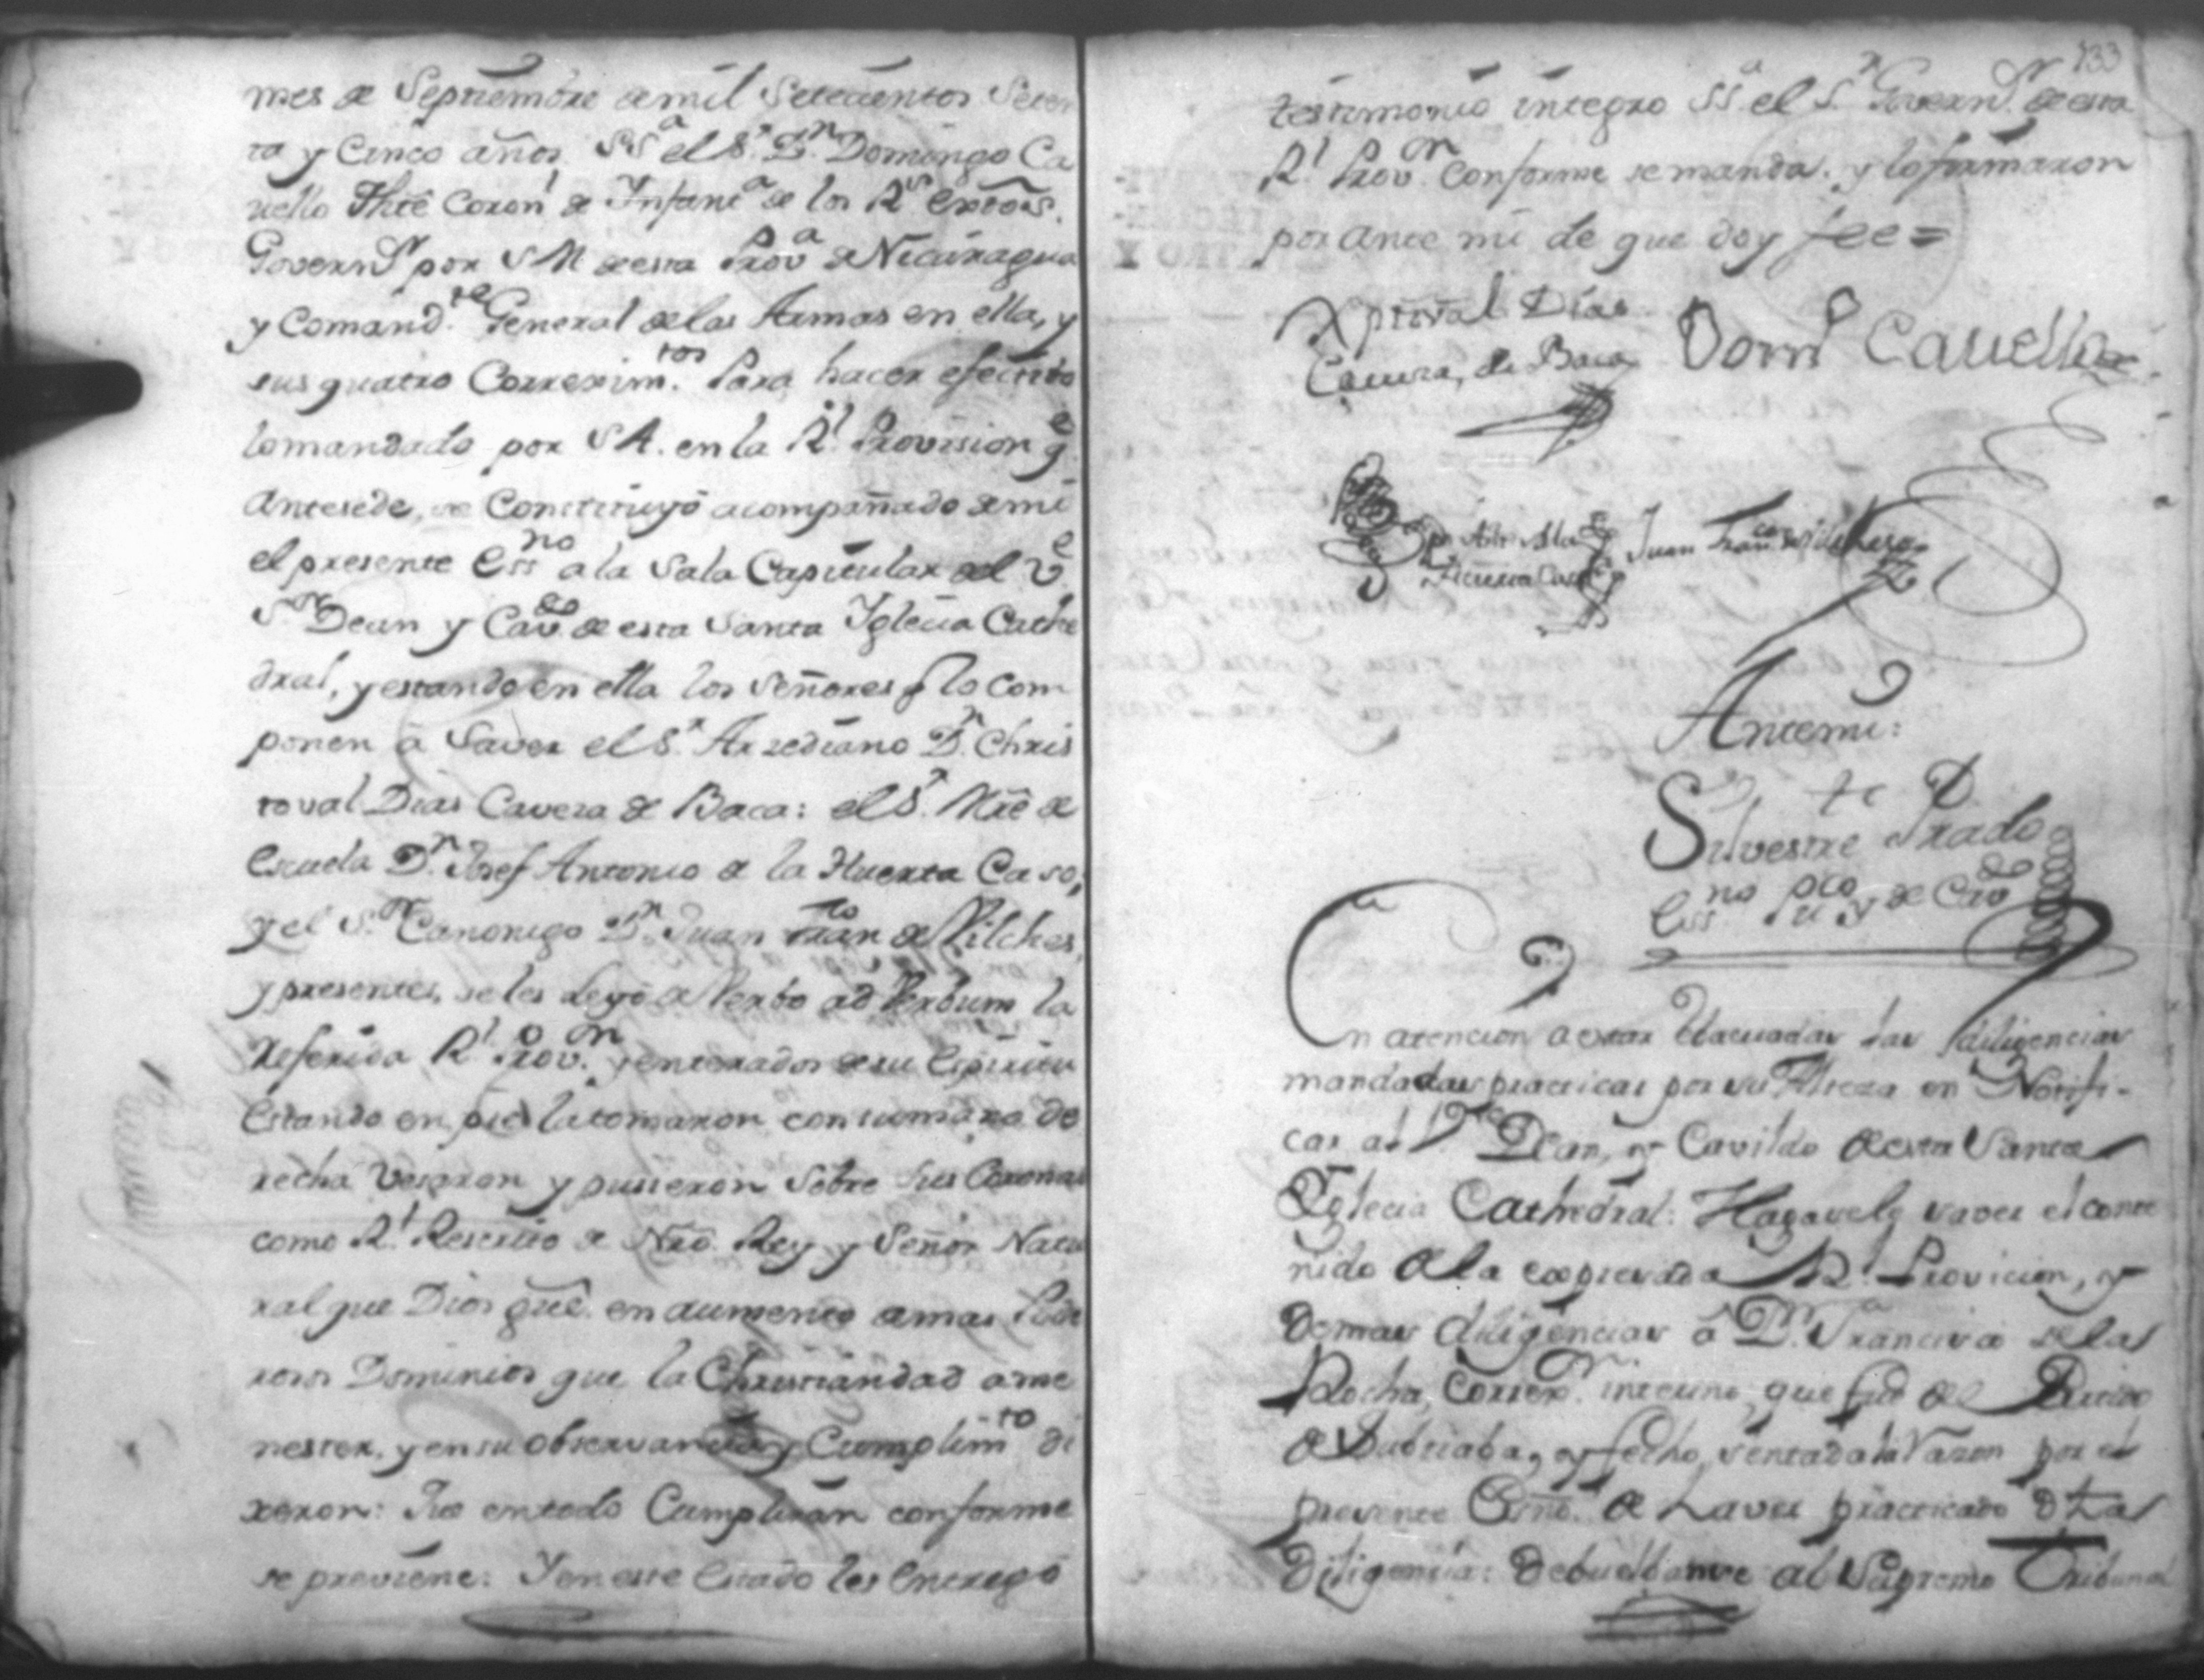 mes de Septiembre de mil Setecientos Seten
ta y Cinco años. SSª el S.r D.n Domingo Ca
vello Thte Coron.l de Infanª de los R.s exttos.
Govern.or por S M de esta Provª de Nicaragua
y Comand.te General de las Armas en ella, y
sus quatro Correxim.tos Para hacer efectivo
lo mandado por S A. en la R.l Provision q.e
Antesede, se Constituyó acompañado de mi
el presente Ess.no a la Sala Capitular del V.e
S.or Dean y Cav.do de esta Santa Iglecia Cathe
dral, y estando en ella los Señores q lo com
ponen â Saver el S.r Arzediano D.n Chris
toval Dias Caveza de Baca: el S.r Mrê de
Escuela D.n Josef Antonio de la Huerta Caso,
y el S.or Canonigo D.n Juan Fran.co de Vilches,
y presentes, se les leyó de Verbo ad Verbum la
Referida R.l Prov.on y enterados de su Espiritu
Estando en pie la tomaron con su mano de
recha Vesaron y pusieron Sobre sus Coronas
como R.l Rescrito de Nrô. Rey y Señor Natu
ral que Dios gûe. en aumento de mas Pode
rosos Dominios que la Christiandad a me
nester, y en su observancia y Cumplim.to di
xeron: Que en todo Cumpliran conforme
se previene: Y en este Estado les Entregó
133
testimonio integro SSª el S.r Govern.or de esta
R.l Prov.on Conforme se manda. y lo firmaron
por ante mi de que doy fee =
Xptoval Días
Caveza de Baca
Dom.o Cauello
Juan Fran.co de Vilches
Antemi:
Silvestre Prado
Ess.no pco y de Cav.do
En atencion a estar Evacuadas las diligencias
mandadas practicar por su Alteza en Notifi-
car al V.e Dean, y Cavildo de esta Santa
Yglecia Cathedral: Hagasele saver el conte
nido de la expresada R.l Provicion, y
demas diligencias â D.n Franciso de la
Rocha, Correx.or interino, que fue del Partido
de Subtiaba, y fecho, sentada la Razon por el
presente Essno. de haver practicado dha
Diligencia: debuelbanse al Supremo Tribunal